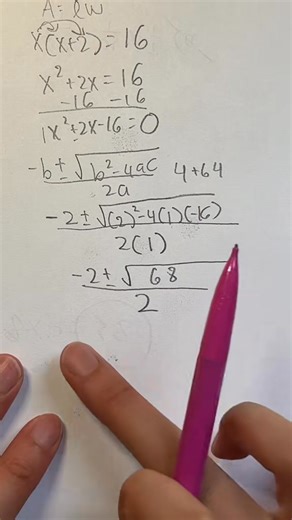 A = lw
x(x+2) = 16
x² + 2x = 16
-16 -16
1x² + 2x - 16 = 0
-b ± √b² - 4ac
2a
4 + 64
-2 ± √(2)² - 4(1)(-16)
2(1)
-2 ± √68
2